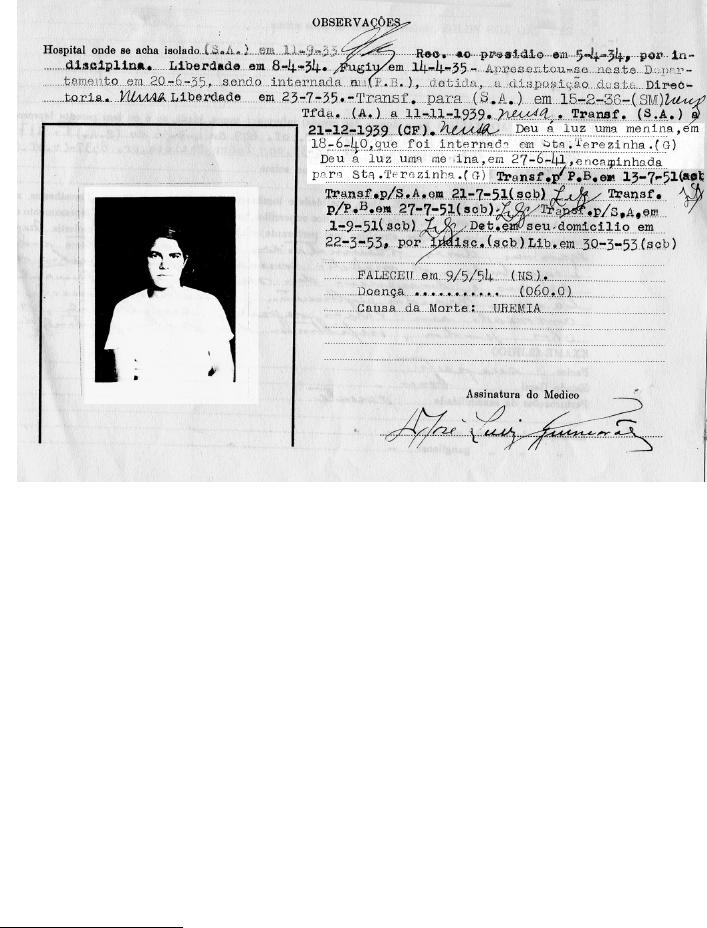 OBSERVAÇÕES
Hospital onde se acha isolado (S.A.) em 11-9-33 Rec. ao presidio em 5-4-34, por in-
disciplina. Liberdade em 8-4-34. Fugiu em 14-4-35- Apresentou-se neste Depar-
tamento em 20-6-35, sendo internada na (P.B.), detida, a disposição desta Direc-
toria. Neusa Liberdade em 23-7-35.-Transf. para (S.A.) em 15-2-36-(SM)
Tfda. (A.) a 11-11-1939. neusa. Transf. (S.A.) a
21-12-1939 (CF). neusa Deu á luz uma menina, em
18-6-40, que foi internada em Sta. Terezinha. (G)
Deu á luz uma menina, em 27-6-41, encaminhada
para Sta. Terezinha. (G) Transf. p/ P.B. em 13-7-51
Transf. p/S.A. em 21-7-51(scb) Transf.
p/P.B. em 27-7-51(scb) Transf. p/S.A. em
1-9-51(scb) Det. em seu domicilio em
22-3-53, por indisc.(scb) Lib. em 30-3-53(scb)
FALECEU em 9/5/54 (NS).
Doença ........... (060.0)
Causa da Morte: UREMIA
Assinatura do Medico
José Luiz Guimarães